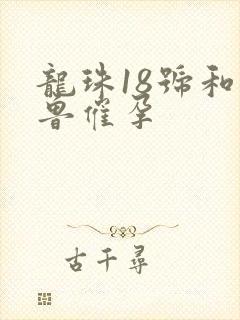 龍珠18號和
獸催孕
古千尋